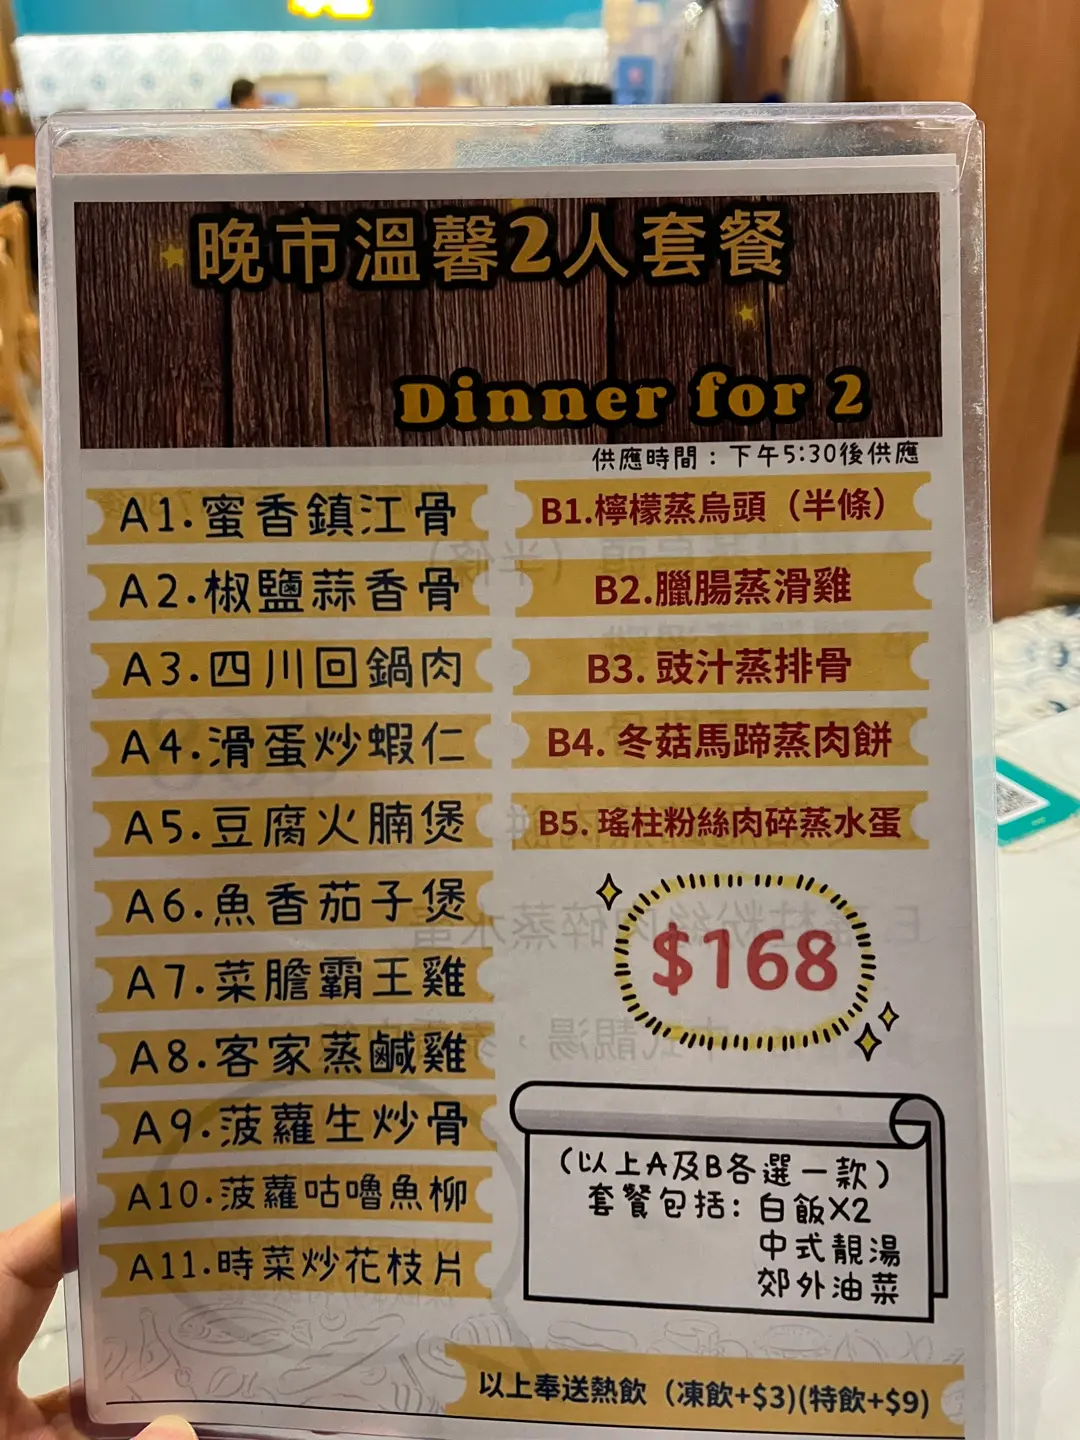 晚市溫馨2人套餐
Dinner for 2
供應時間：下午5:30後供應
A1.蜜香鎮江骨
A2.椒鹽蒜香骨
A3.四川回鍋肉
A4.滑蛋炒蝦仁
A5.豆腐火腩煲
A6.魚香茄子煲
A7.菜膽霸王雞
A8.客家蒸鹹雞
A9.菠蘿生炒骨
A10.菠蘿咕嚕魚柳
A11.時菜炒花枝片
B1.檸檬蒸烏頭（半條）
B2.臘腸蒸滑雞
B3. 豉汁蒸排骨
B4. 冬菇馬蹄蒸肉餅
B5. 瑤柱粉絲肉碎蒸水蛋
$168
（以上A及B各選一款）
套餐包括: 白飯X2
中式靚湯
郊外油菜
以上奉送熱飲（凍飲+$3)(特飲+$9)